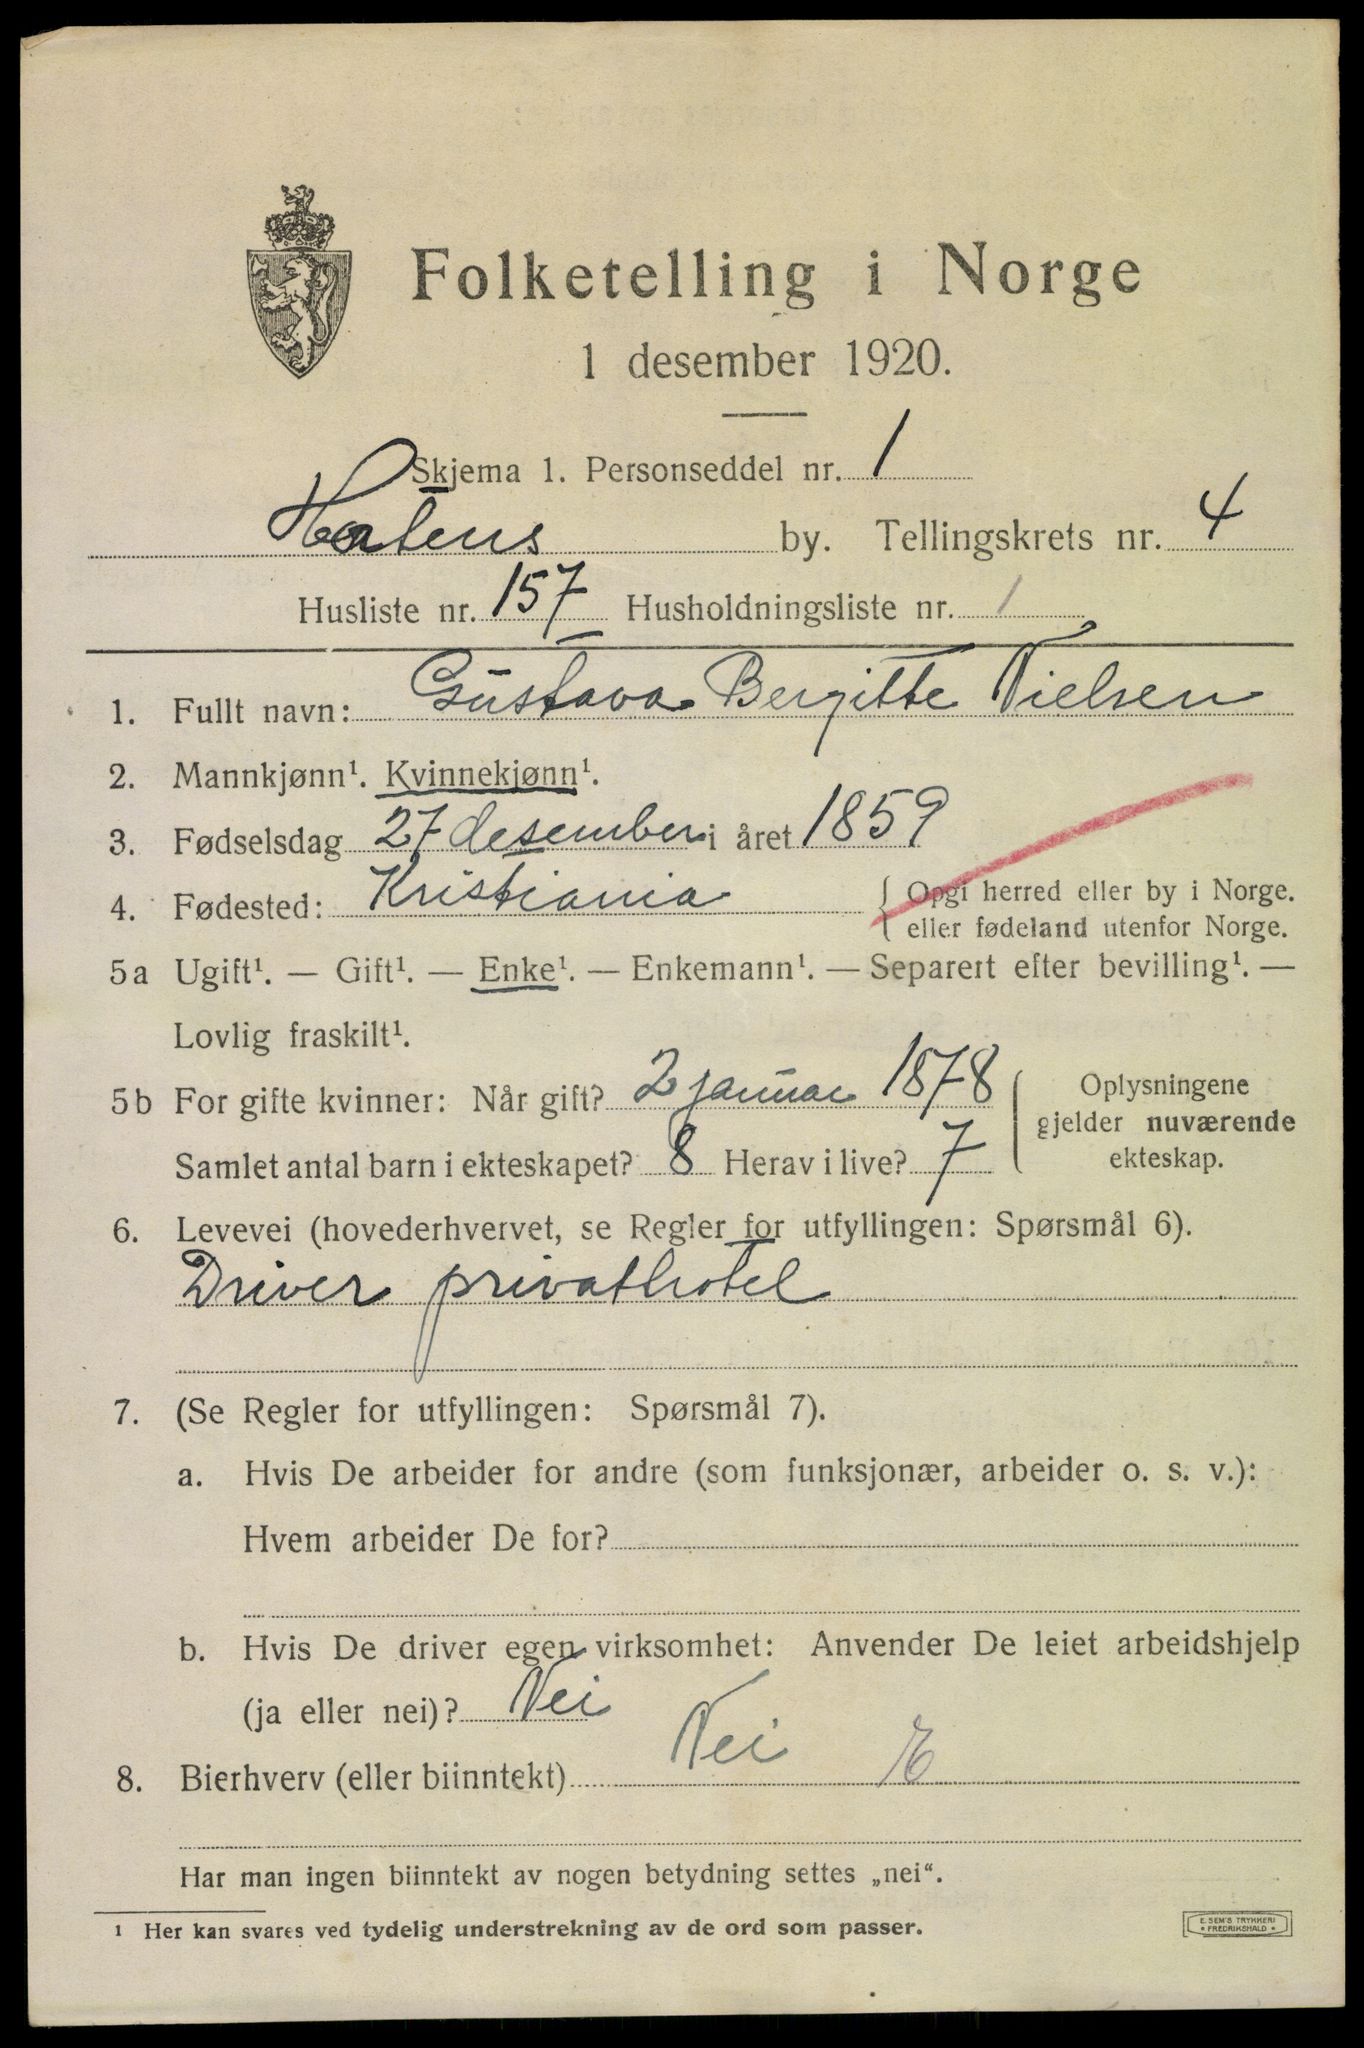 Folketelling i Norge
1 desember 1920.
Skjema 1. Personseddel nr. 1
Hortens by. Tellingskrets nr. 4
Husliste nr. 157 Husholdningsliste nr. 1
1. Fullt navn: Gustava Bergitte Nielsen
2. Mannkjønn¹. Kvinnekjønn¹.
3. Fødselsdag 27 desember i året 1859
4. Fødested: Kristiania { Opgi herred eller by i Norge.
eller fødeland utenfor Norge.
5a Ugift¹. — Gift¹. — Enke¹. — Enkemann¹. — Separert efter bevilling¹. —
Lovlig fraskilt¹.
5b For gifte kvinner: Når gift? 2 januar 1878
Samlet antal barn i ekteskapet? 8 Herav i live? 7
Oplysningene
gjelder nuværende
ekteskap.
6. Levevei (hovederhvervet, se Regler for utfyllingen: Spørsmål 6).
Driver privathotel
7. (Se Regler for utfyllingen: Spørsmål 7).
a. Hvis De arbeider for andre (som funksjonær, arbeider o. s. v.):
Hvem arbeider De for?
b. Hvis De driver egen virksomhet: Anvender De leiet arbeidshjelp
(ja eller nei)? Nei
8. Bierhverv (eller biinntekt) Nei
Har man ingen biinntekt av nogen betydning settes „nei“.
¹ Her kan svares ved tydelig understrekning av de ord som passer.
E. SEM'S TRYKKERI
• FREDRIKSHALD •